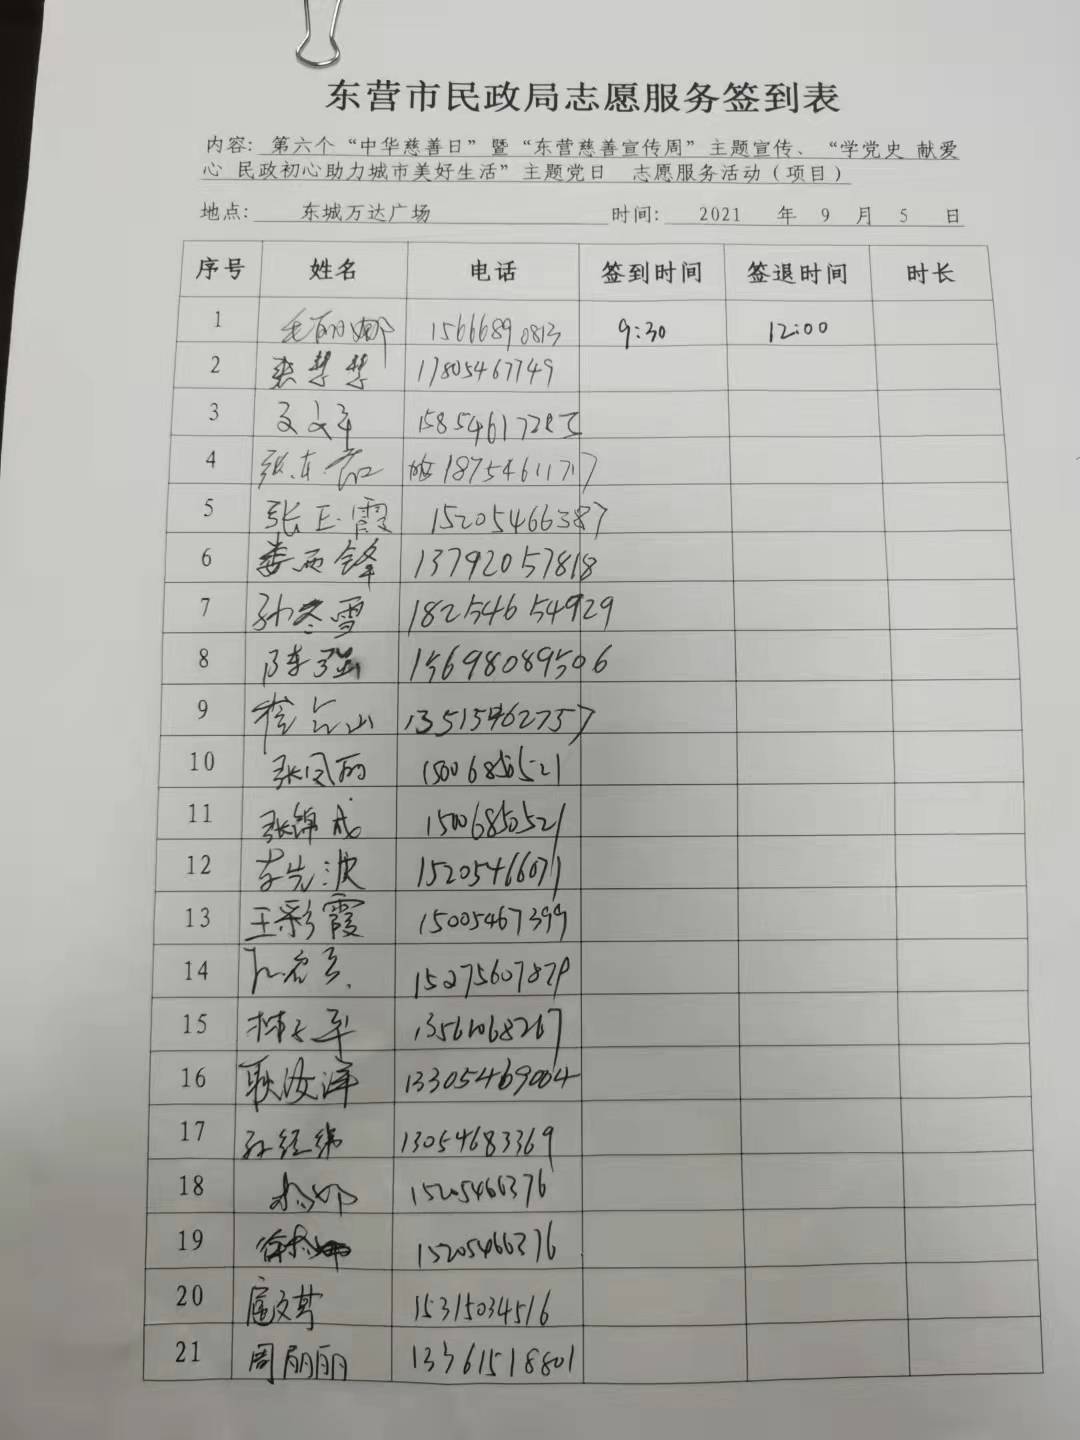 东营市民政局志愿服务签到表
内容: 第六个“中华慈善日”暨“东营慈善宣传周”主题宣传、“学党史 献爱
心 民政初心助力城市美好生活”主题党日 志愿服务活动（项目）
地点: 东城万达广场 时间: 2021 年 9 月 5 日
序号 姓名 电话 签到时间 签退时间 时长
1 毛丽娜 15666890813 9:30 12:00
2 慧慧 17805467749
3
4 张东 18754611717
5 张玉霞 15205466387
6 娄西锋 13792057818
7 孙冬雪 18254654929
8 陈强 15698089506
9 山 13515462757
10 张凤丽 15006850521
11 张锦成 15006850521
12 李先波 15205466071
13 王彩霞 15005467399
14 15275607879
15 林 13561068267
16 耿汝洋 13305469004
17 孙经纬 13054683369
18 15205466376
19 徐 15205466376
20 扈文 15315034516
21 周丽丽 13361518801